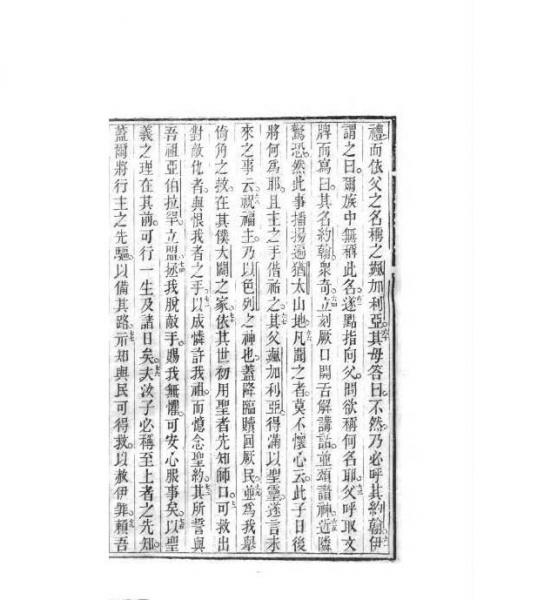 禮而依父之名稱之颯加利亞其母答曰不然乃必呼其約翰伊
謂之曰爾族中無稱此名遂點指向父問欲稱何名耶父呼取文
牌而寫曰其名約翰衆奇立刻厥口開舌解講話並頌讚神近隣
驚恐然此事播揚遍猶太山地凡聞之者莫不懷心云此子日後
將何為耶且主之手偕祐之其父颯加利亞得滿以聖靈遂言未
來之事云祝福主乃以色列之神也蓋降臨贖回厥民並為我舉
倚角之救在其僕大闢之家依其世初用聖者先知師口可救出
對敵化者與恨我者之手以成憐許我祖而憶念聖約其所誓與
吾祖亞伯拉罕立盟拯我脫敵手賜我無懼可安心服事矣以聖
義之理在其前可行一生及諸日矣夫汝子必稱至上者之先知
蓋爾將行主之先驅以備其路示知與民可得救以赦伊罪賴吾